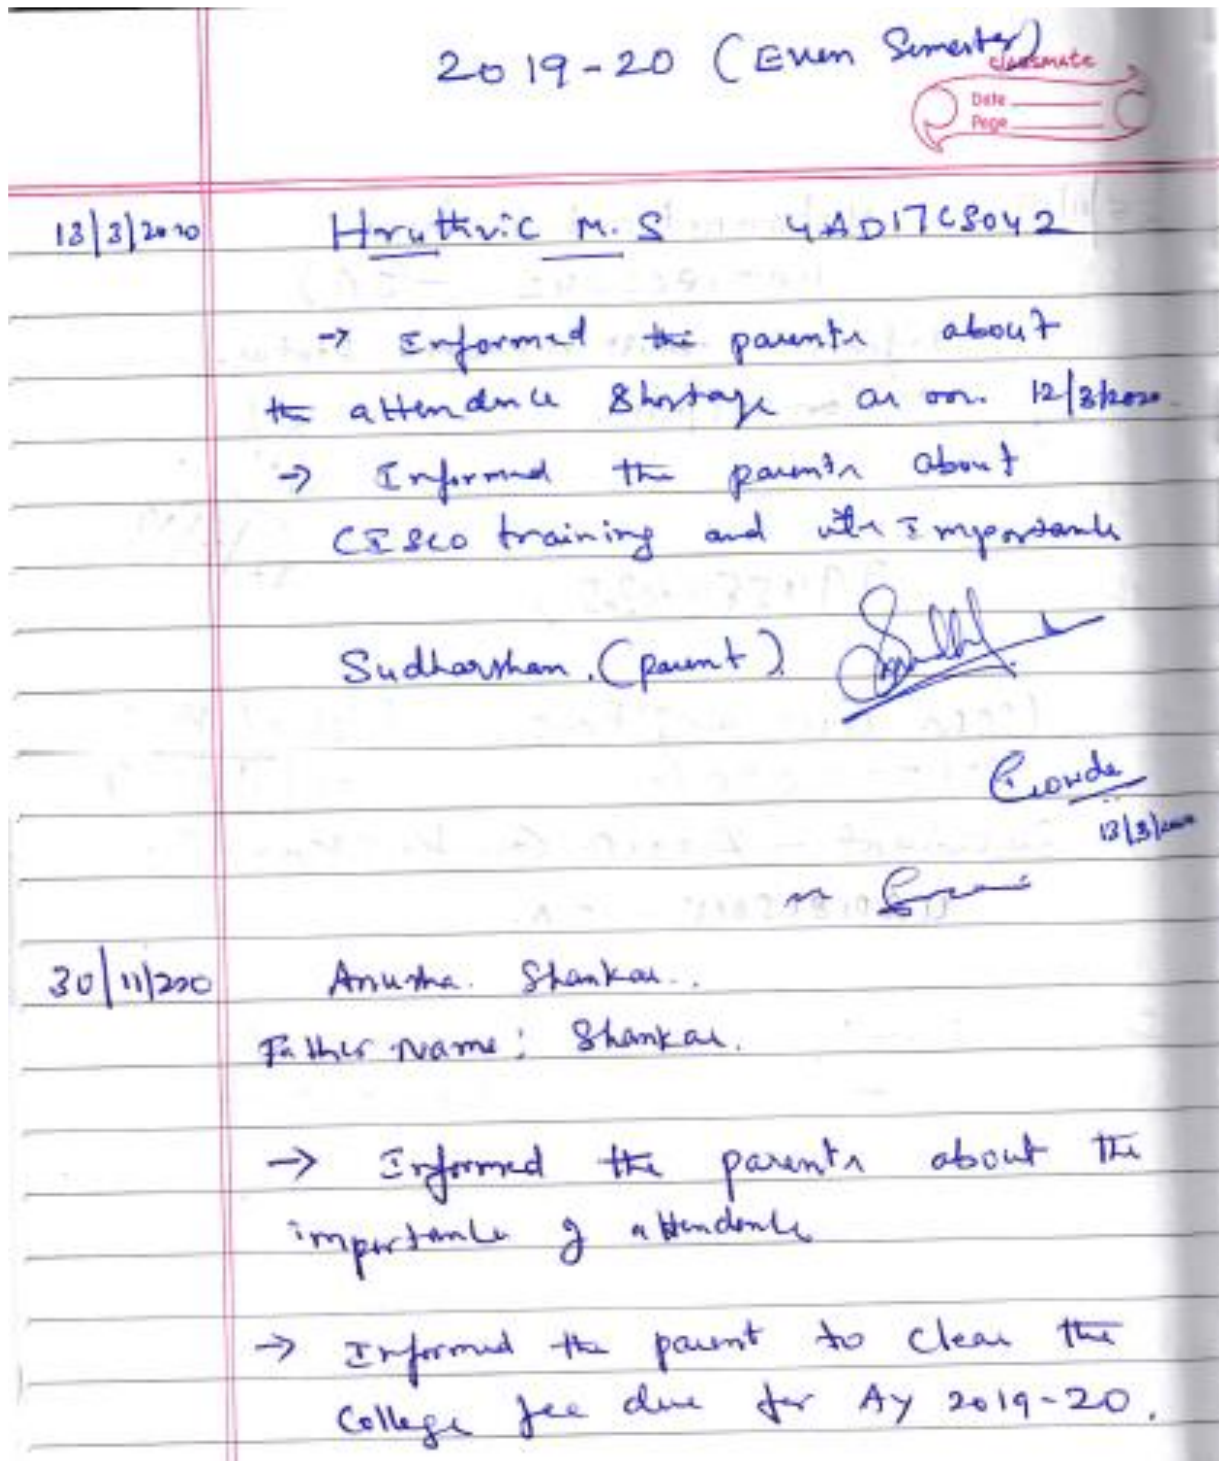 2019-20 (Even Semester)
classmate
Date
Page
13/3/2020 Hruthvic M.S 4AD17CS042
→ Informed the parents about
the attendence Shortage as on. 12/3/2020
→ Informed the parents about
CISCO training and its Importance
Sudharshan. (parent)
Gowda
13/3/2020
30/11/2020 Anusha. Shankar.
Father Name: Shankar.
→ Informed the parents about the
importance of attendence
→ Informed the parent to clear the
College fee due for AY 2019-20.